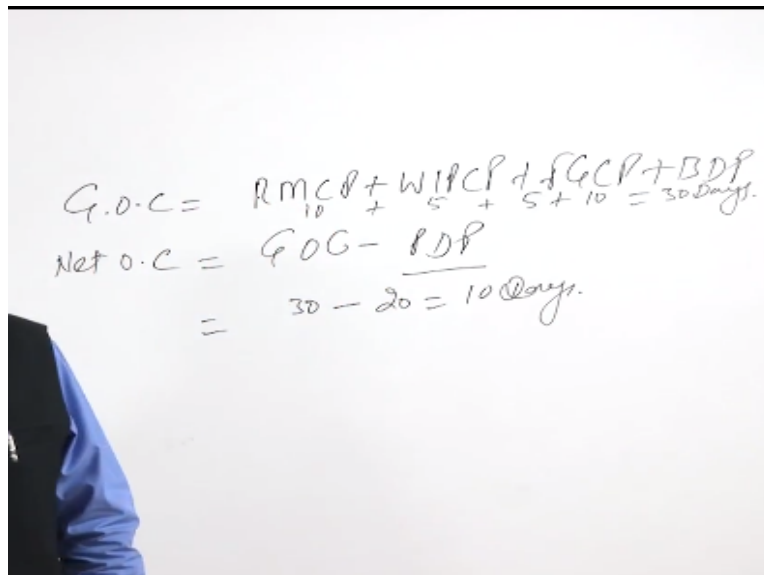 G.O.C = RMCP + WIPCP + FGCP + BDP
10 + 5 + 5 + 10 = 30 Days.
Net O.C = GOC - PDP
= 30 - 20 = 10 Days.